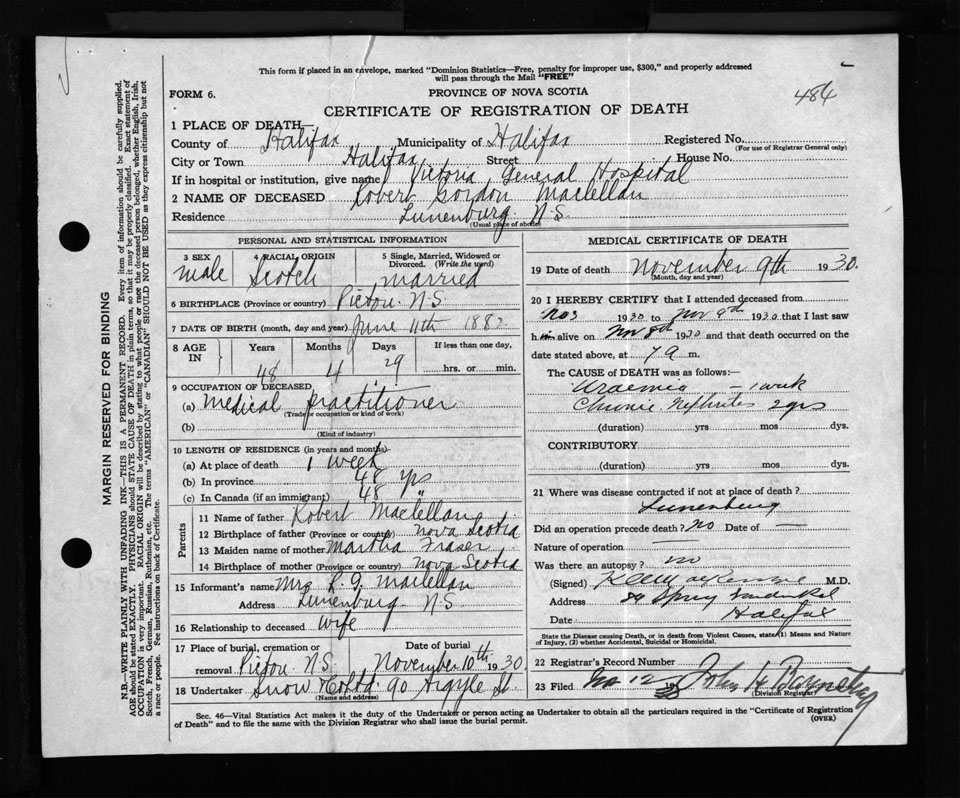 This form if placed in an envelope, marked "Dominion Statistics—Free, penalty for improper use, $300," and properly addressed
will pass through the Mail "FREE"
FORM 6.
PROVINCE OF NOVA SCOTIA
484
CERTIFICATE OF REGISTRATION OF DEATH
1 PLACE OF DEATH—
County of Halifax Municipality of Halifax Registered No.
(For use of Registrar General only)
City or Town Halifax Street House No.
If in hospital or institution, give name Victoria General Hospital
2 NAME OF DECEASED Robert Gordon Maclellan
Residence Lunenburg N.S.
(Usual place of abode)
PERSONAL AND STATISTICAL INFORMATION
3 SEX 4 RACIAL ORIGIN 5 Single, Married, Widowed or
Divorced. (Write the word)
male Scotch married
6 BIRTHPLACE (Province or country) Pictou N.S.
7 DATE OF BIRTH (month, day and year) June 11th 1882
8 AGE IN Years Months Days If less than one day,
48 4 29 hrs. or min.
9 OCCUPATION OF DECEASED
(a) medical practitioner
(Trade occupation or kind of work)
(b)
(Kind of industry)
10 LENGTH OF RESIDENCE (in years and months)
(a) At place of death 1 week
(b) In province 48 yrs
(c) In Canada (if an immigrant) 48 "
Parents
11 Name of father Robert Maclellan
12 Birthplace of father (Province or country) Nova Scotia
13 Maiden name of mother Martha Fraser
14 Birthplace of mother (Province or country) Nova Scotia
15 Informant's name Mrs R. G. Maclellan
Address Lunenburg N.S.
16 Relationship to deceased wife
17 Place of burial, cremation or
removal Pictou N.S. November 10th 1930
Date of burial
18 Undertaker Snow & Co Ltd 90 Argyle St.
(Name and address)
MEDICAL CERTIFICATE OF DEATH
19 Date of death November 9th 1930.
(Month, day and year)
20 I HEREBY CERTIFY that I attended deceased from
Nov 1930 to Nov 8th 1930 that I last saw
him alive on Nov 8th 1930 and that death occurred on the
date stated above, at m.
The CAUSE of DEATH was as follows:—
Uraemia — 1 week
Chronic Nephritis 2 yrs
(duration) yrs mos dys.
CONTRIBUTORY
(duration) yrs mos dys.
21 Where was disease contracted if not at place of death?
Lunenburg
Did an operation precede death? no Date of —
Nature of operation —
Was there an autopsy? no
(Signed) M.D.
Address 84 Spring Garden Rd
Date Halifax
State the Disease causing Death, or in death from Violent Causes, state (1) Means and Nature
of Injury, (2) whether Accidental, Suicidal or Homicidal.
22 Registrar's Record Number
23 Filed Nov 12 John H Barnstead
(Division Registrar)
Sec. 46—Vital Statistics Act makes it the duty of the Undertaker or person acting as Undertaker to obtain all the particulars required in the "Certificate of Registration
of Death" and to file the same with the Division Registrar who shall issue the burial permit.
(OVER)
MARGIN RESERVED FOR BINDING
N.B.—WRITE PLAINLY WITH UNFADING INK—THIS IS A PERMANENT RECORD. Every item of information should be carefully supplied.
AGE should be stated EXACTLY. PHYSICIANS should STATE CAUSE OF DEATH in plain terms, so that it may be properly classified. Exact statement of
OCCUPATION is very important. RACIAL ORIGIN will be described by stating to what people or race the deceased person belonged, whether English, Irish,
Scotch, French, German, Russian, Ruthenian, etc. The terms "AMERICAN" or "CANADIAN" SHOULD NOT BE USED as they express citizenship but not
a race or people. Fee instructions on back of Certificate.